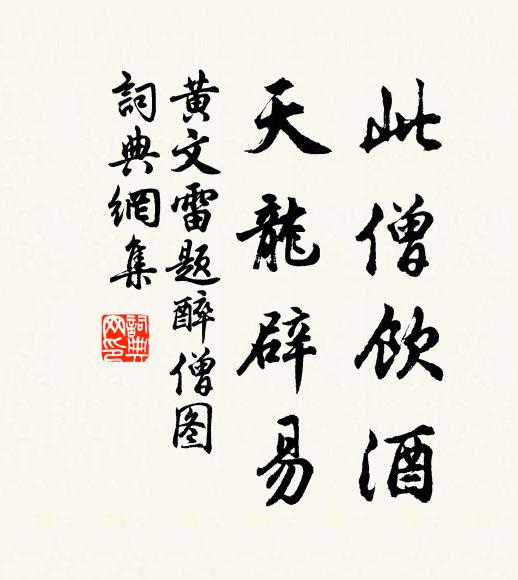 此僧飲酒
天龍辟易
黄文雷题醉僧图
詞典網集
詞典
网印